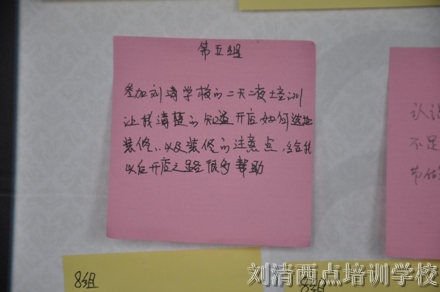 第五组
参加刘清学校的二天一夜培训
让我清楚的知道开店如何选址
装修,以及装修的注意点,给我
以后开店之路很多帮助
认识
不足
8组
8组
刘清西点培训学校